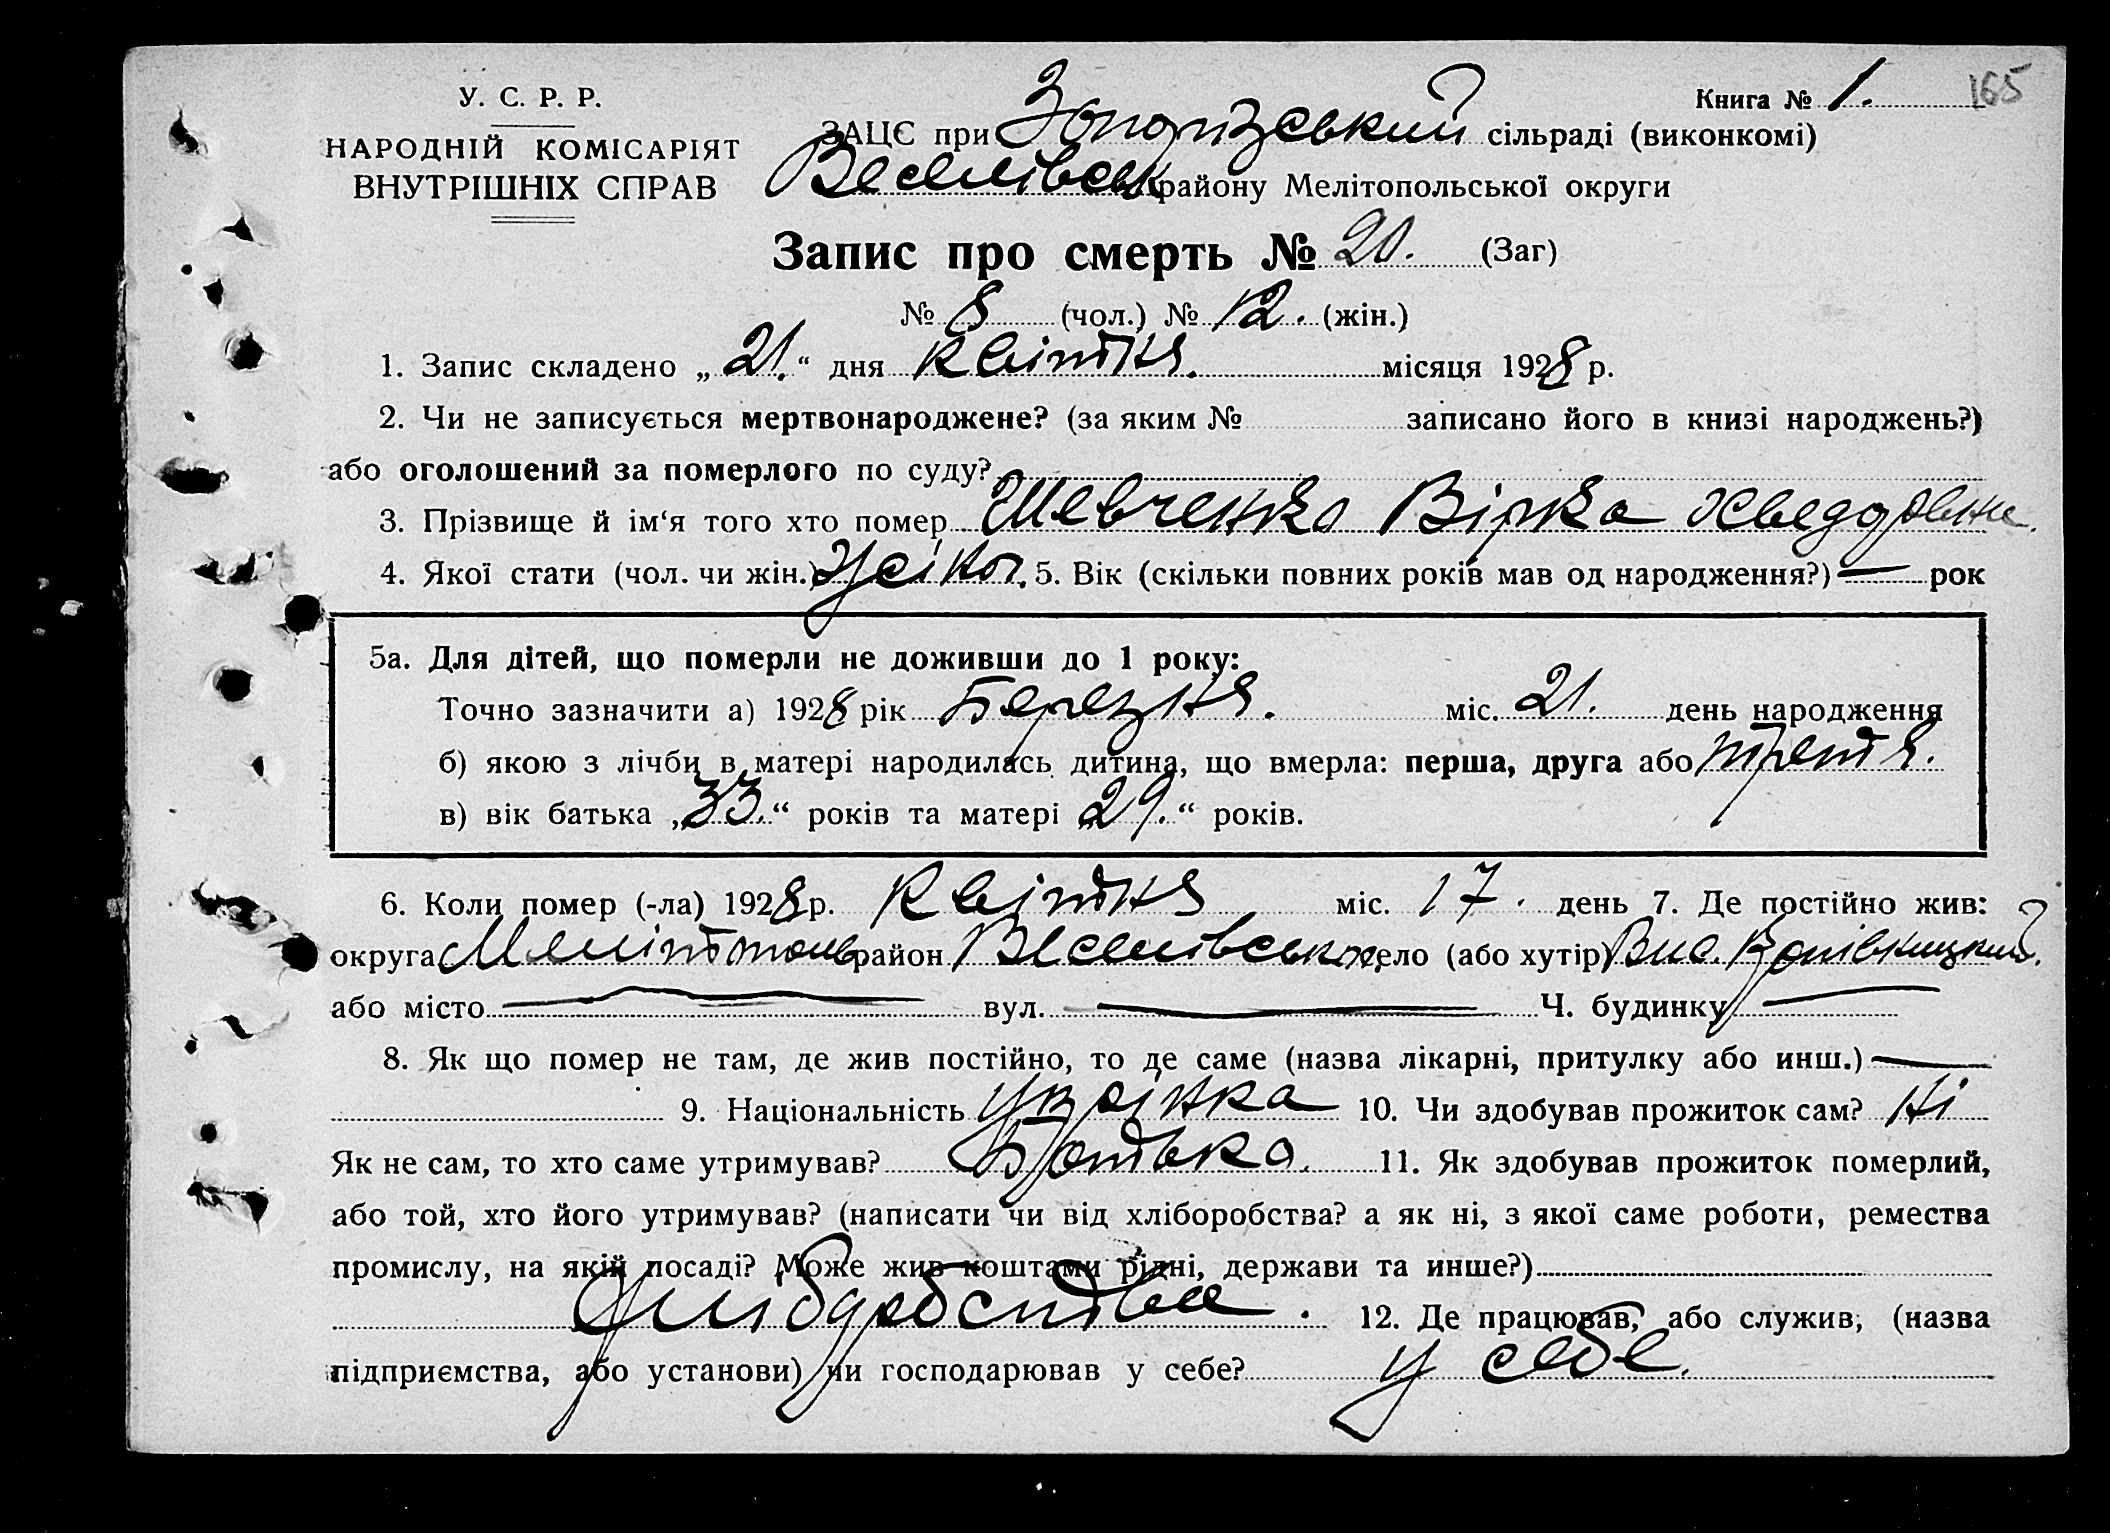 У. С. Р. Р.
НАРОДНІЙ КОМІСАРІЯТ
ВНУТРІШНІХ СПРАВ
Книга № 1.
165
ЗАЦС при Запорізський сільраді (виконкомі)
Веселівськ району Мелітопольської округи
Запис про смерть № 20. (Заг)
№ 8 (чол.) № 12. (жін.)
1. Запис складено „21.“ дня Квітня. місяця 1928 р.
2. Чи не записується мертвонароджене? (за яким № записано його в книзі народжень?)
або оголошений за померлого по суду?
3. Прізвище й ім‘я того хто помер Шевченко Вірка Хведоровна.
4. Якої стати (чол. чи жін.) 5. Вік (скільки повних років мав од народження?) — рок
5а. Для дітей, що померли не доживши до 1 року:
Точно зазначити а) 1928 рік Березня. міс. 21. день народження
б) якою з лічби в матері народилась дитина, що вмерла: перша, друга або третя.
в) вік батька „33.“ років та матері „29.“ років.
6. Коли помер (-ла) 1928 р. Квітня міс. 17. день 7. Де постійно жив:
округа Мелітополь район Веселівського село (або хутір) Вис.
або місто — вул. — Ч. будинку —
8. Як що помер не там, де жив постійно, то де саме (назва лікарні, притулку або инш.) —
9. Національність Українка 10. Чи здобував прожиток сам? Ні
Як не сам, то хто саме утримував? Батько. 11. Як здобував прожиток померлий,
або той, хто його утримував? (написати чи від хліборобства? а як ні, з якої саме роботи, ремества
промислу, на якій посаді? Може жив коштами рідні, держави та инше?)
Хліборобства. 12. Де працював, або служив, (назва
підприємства, або установи) чи господарював у себе? у себе.